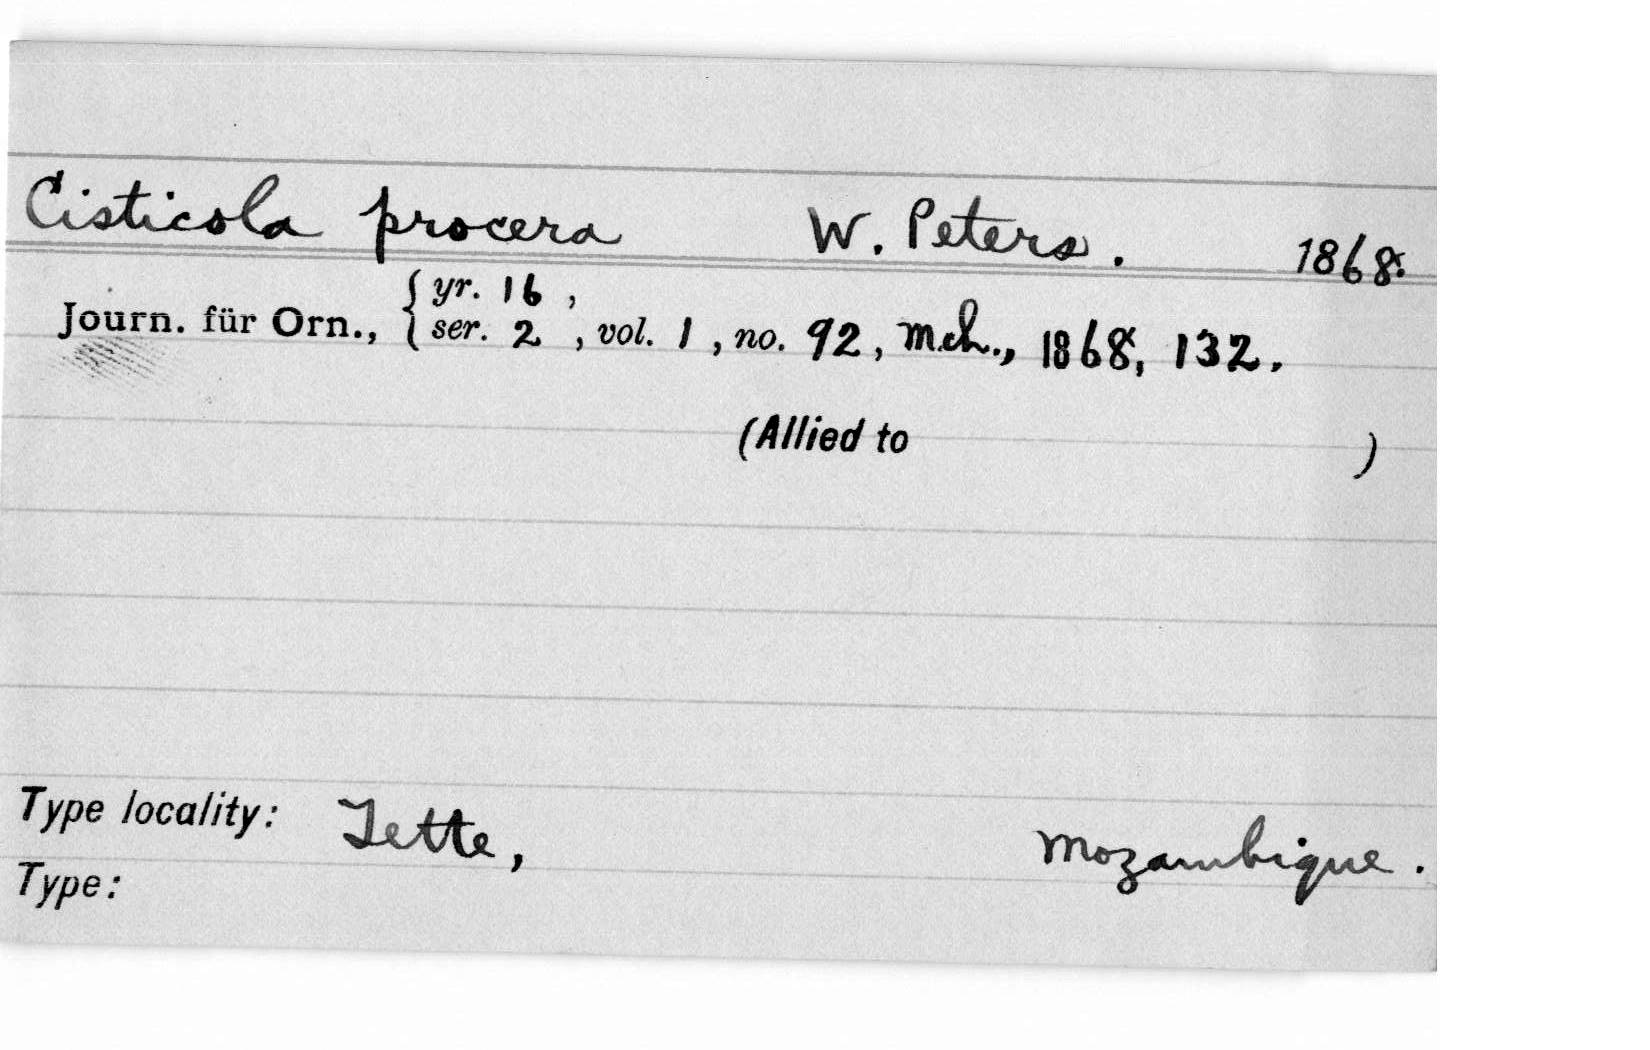 Cisticola procera W. Peters. 1868.
Journ. für Orn., { yr. 16 ,
ser. 2 , vol. 1 , no. 92, Mch., 1868, 132.
(Allied to )
Type locality: Tette, Mozambique.
Type: